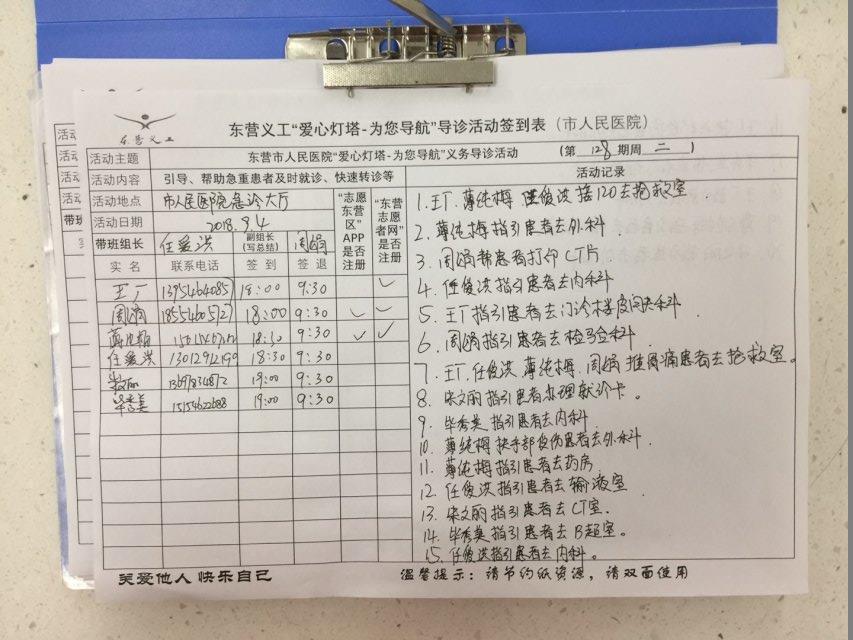 东营义工
东营义工“爱心灯塔-为您导航”导诊活动签到表（市人民医院）
活动主题 东营市人民医院“爱心灯塔-为您导航”义务导诊活动 （第 128 期周 二 ）
活动内容 引导、帮助急重患者及时就诊、快速转诊等
活动地点 市人民医院急诊大厅
活动日期 2018.9.4
带班组长 任爱洪 副组长（写总结） 周娟
“志愿东营区”APP是否注册
“东营志愿者网”是否注册
实名 联系电话 签到 签退
王丁 18:00 9:30 ✓
周娟 18:00 9:30 ✓ ✓
薄纯梅 18:30 9:30 ✓ ✓
任爱洪 18:30 9:30
19:00 9:30
毕秀美 15154622688 19:00 9:30
活动记录
1.王丁.薄纯梅 任俊洪 接120去抢救室.
2.薄纯梅指引患者去外科
3.周娟帮患者打印CT片
4.任俊洪指引患者去内科
5.王丁指引患者去门诊楼皮肤科
6.周娟指引患者去检验科
7.王丁.任俊洪.薄纯梅.周娟 推胃痛患者去抢救室。
8.宋文丽指引患者办理就诊卡.
9.毕秀美指引患者去内科
10.薄纯梅扶手部受伤患者去外科.
11.薄纯梅指引患者去药房
12.任俊洪指引患者去输液室
13.宋文丽指引患者去CT室.
14.毕秀美指引患者去B超室。
15.任俊洪指引患者去内科。
关爱他人 快乐自己
温馨提示：请节约纸资源，请双面使用